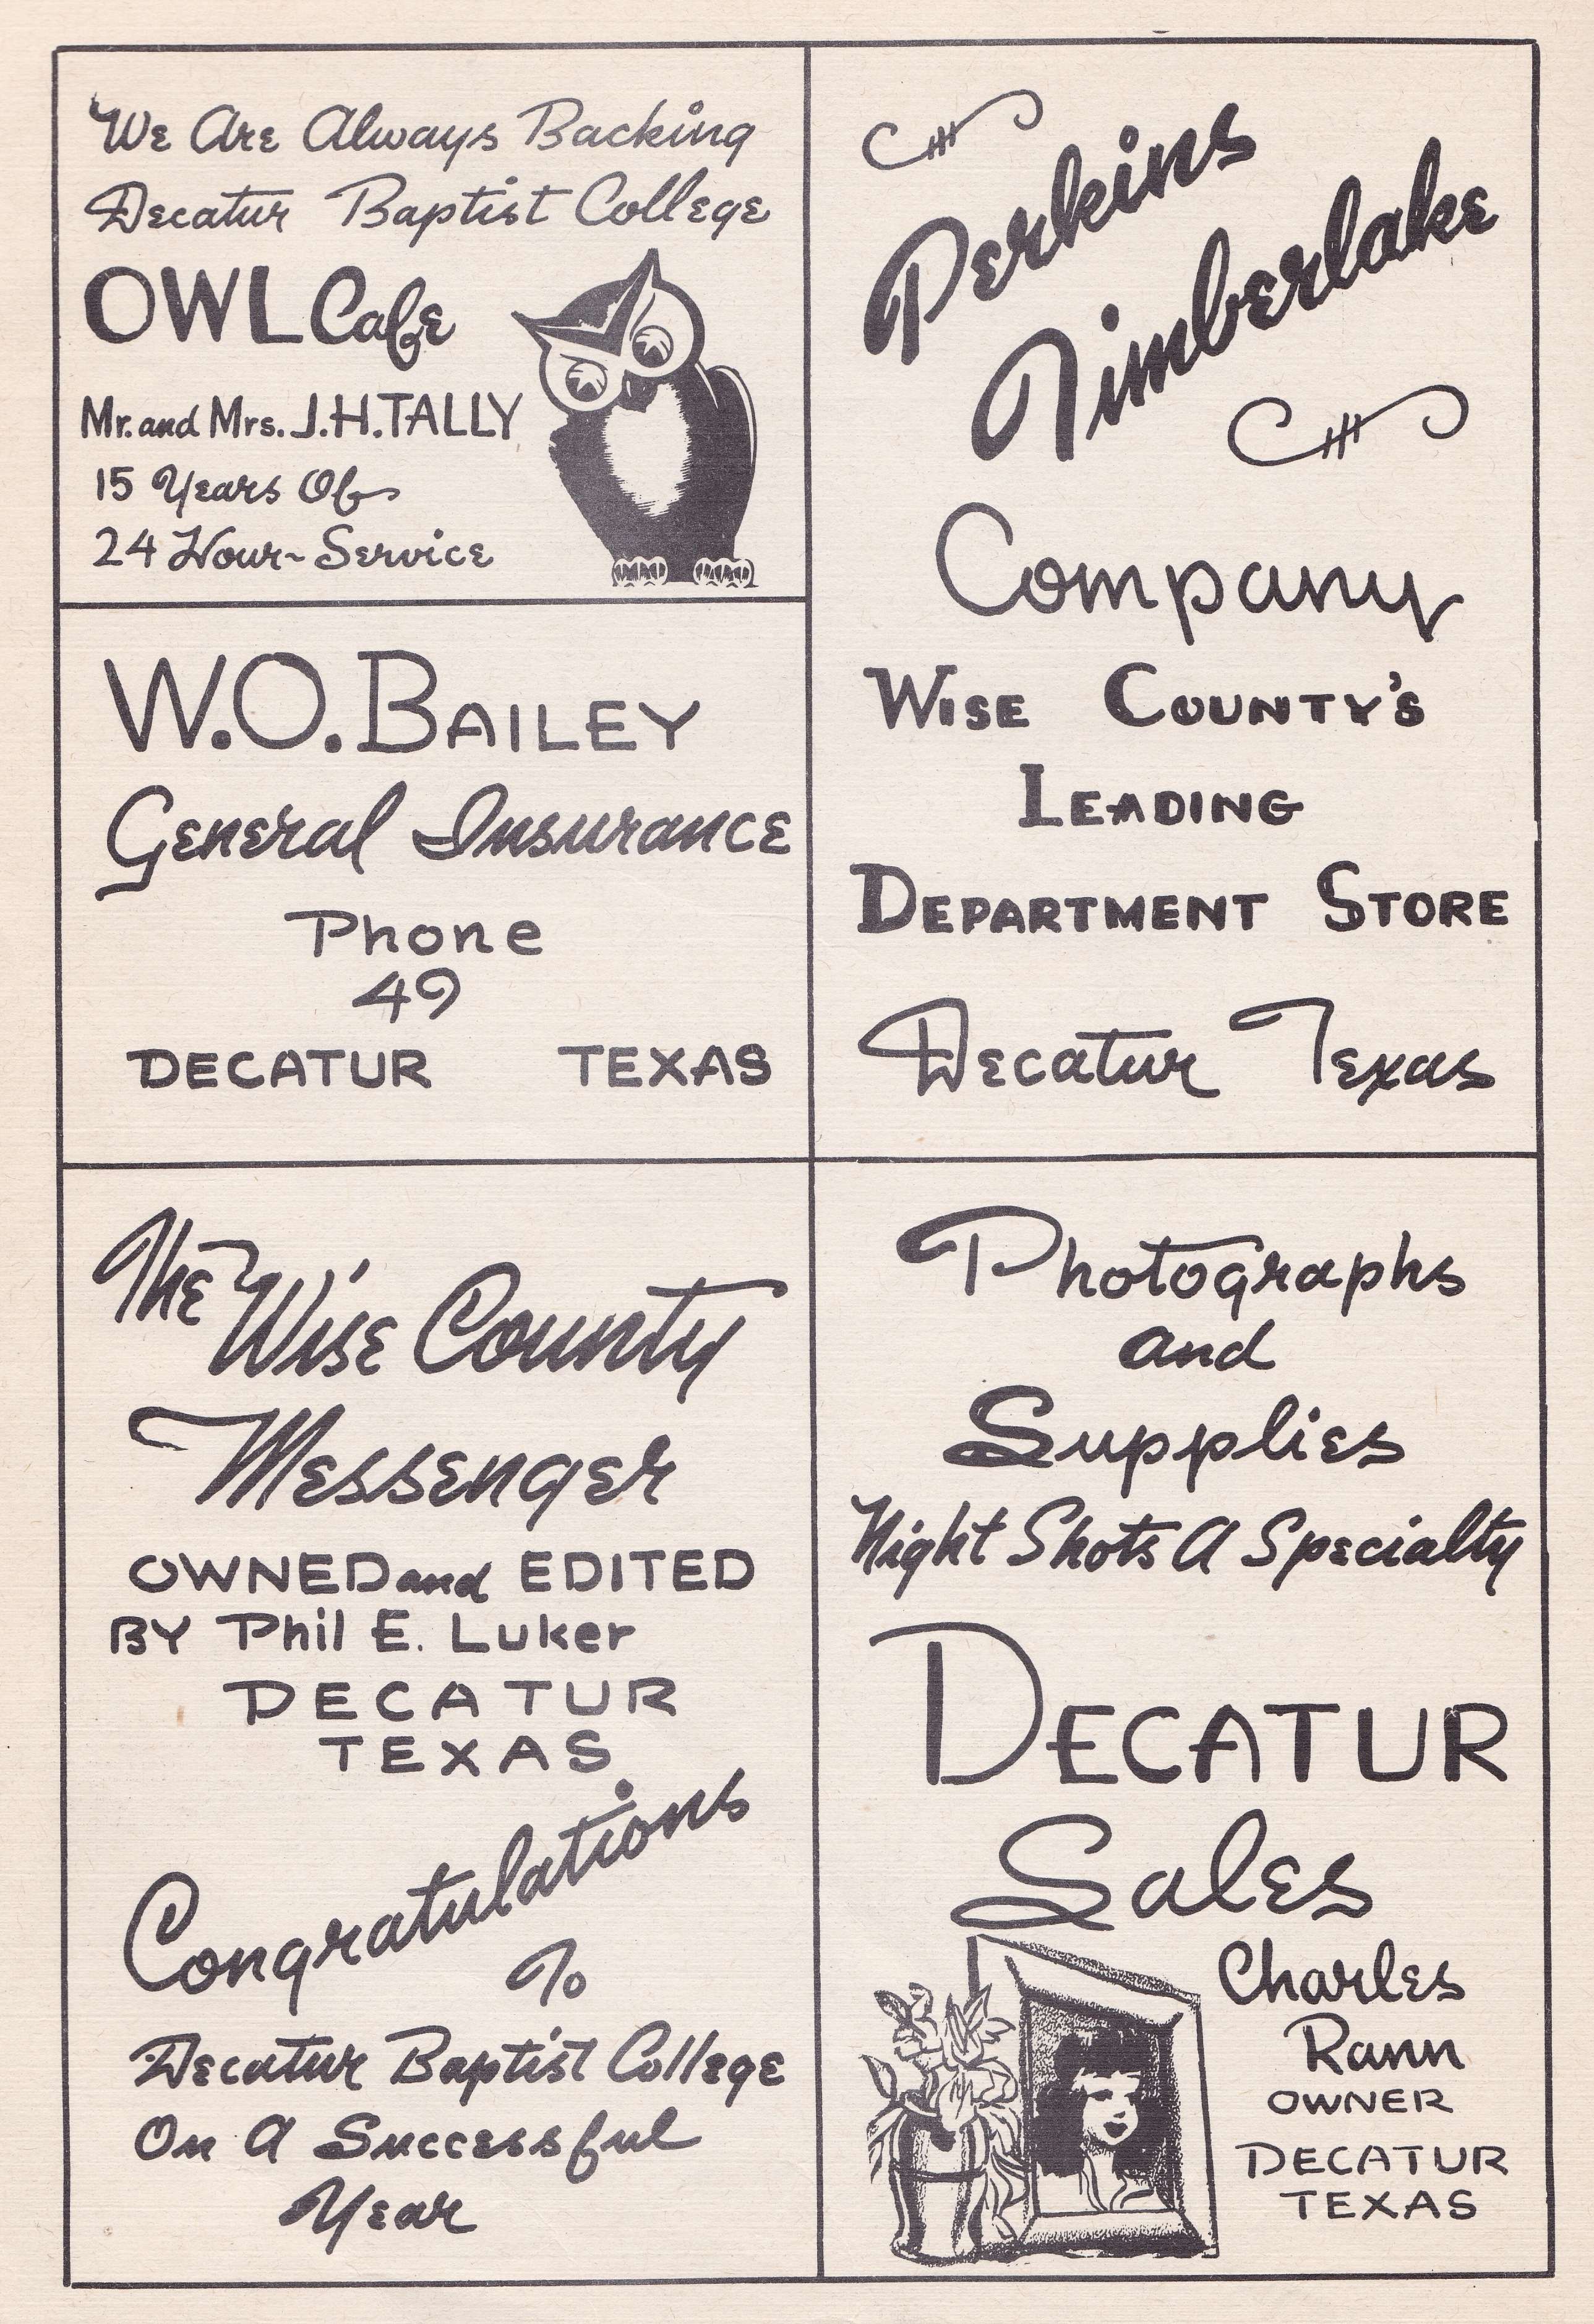 We Are Always Backing
Decatur Baptist College
OWL Cafe
Mr. and Mrs. J.H. TALLY
15 Years Of
24 Hour-Service
W.O. BAILEY
General Insurance
Phone
49
DECATUR TEXAS
Perkins
Timberlake
Company
WISE COUNTY'S
LEADING
DEPARTMENT STORE
Decatur Texas
The Wise County
Messenger
OWNED and EDITED
BY Phil E. Luker
DECATUR
TEXAS
Congratulations
To
Decatur Baptist College
On A Successful
Year
Photographs
and
Supplies
Night Shots A Specialty
DECATUR
Sales
Charles
Rann
OWNER
DECATUR
TEXAS